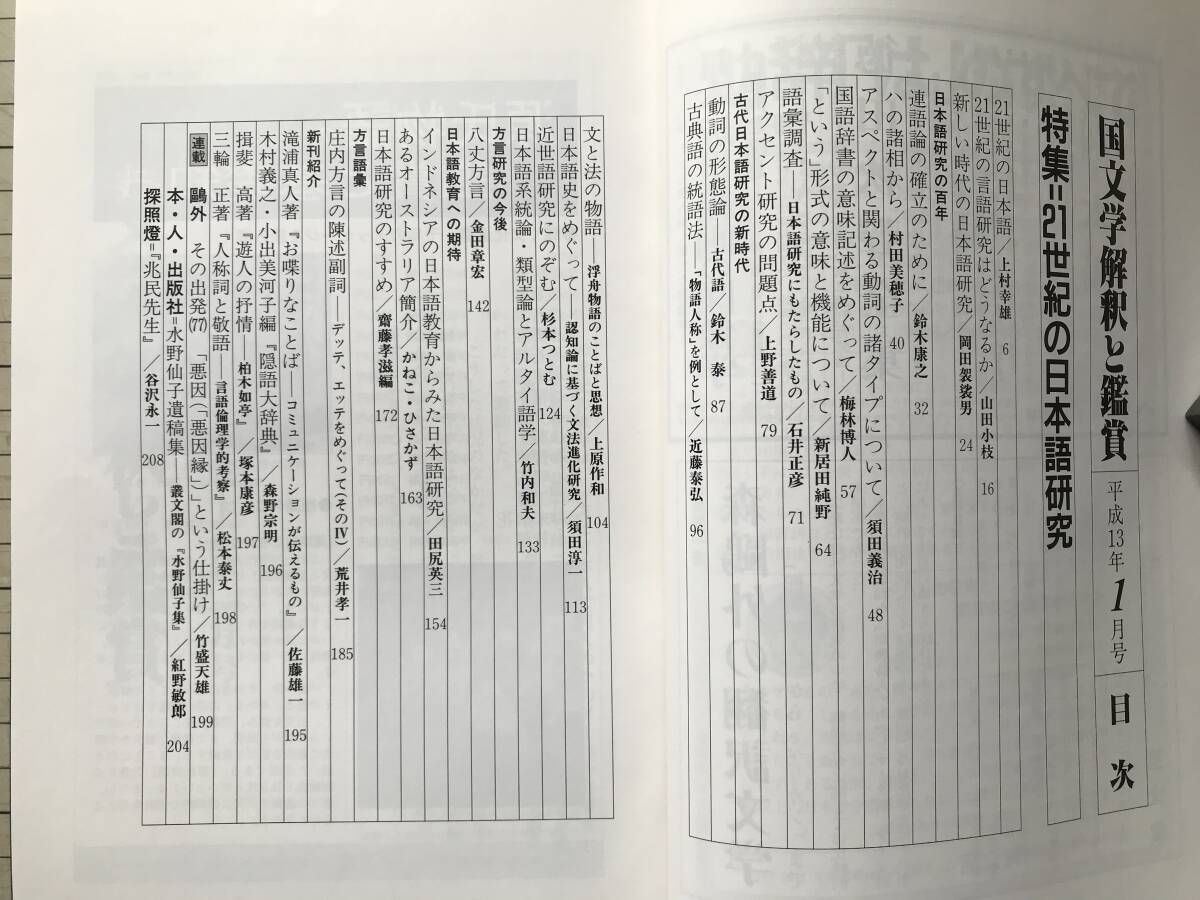 国文学解釈と鑑賞 平成13年1月号 目次
特集=21世紀の日本語研究
21世紀の日本語／上村幸雄 6
21世紀の言語研究はどうなるか／山田小枝 16
新しい時代の日本語研究／岡田袈裟男 24
日本語研究の百年
連語論の確立のために／鈴木康之 32
ハの諸相から／村田美穂子 40
アスペクトと関わる動詞の諸タイプについて／須田義治 48
国語辞書の意味記述をめぐって／梅林博人 57
「という」形式の意味と機能について／新居田純野 64
語彙調査──日本語研究にもたらしたもの／石井正彦 71
アクセント研究の問題点／上野善道 79
古代日本語研究の新時代
動詞の形態論──古代語／鈴木 泰 87
古典語の統語法──「物語人称」を例として／近藤泰弘 96
文と法の物語 浮舟物語のことばと思想／上原作和 104
日本語史をめぐって──認知論に基づく文法進化研究／須田淳一 113
近世語研究にのぞむ／杉本つとむ 124
日本語系統論・類型論とアルタイ語学／竹内和夫 133
方言研究の今後
八丈方言／金田章宏 142
日本語教育への期待
インドネシアの日本語教育からみた日本語研究／田尻英三 154
あるオーストラリア簡介／かねこ・ひさかず 163
日本語研究のすすめ／齋藤孝滋編 172
方言語彙
庄内方言の陳述副詞──デッテ、エッテをめぐって(そのⅣ)／荒井孝一 185
新刊紹介
滝浦真人著『お喋りなことば──コミュニケーションが伝えるもの』／佐藤雄一 195
木村義之・小出美河子編『隠語大辞典』／森野宗明 196
揖斐 高著『遊人の抒情──柏木如亭』／塚本康彦 197
三輪 正著『人称詞と敬語──言語倫理学的考察』／松本泰丈 198
連載 鷗外 その出発(77) 「悪因(「悪因縁」)」という仕掛け／竹盛天雄 199
本・人・出版社=水野仙子遺稿集──叢文閣の『水野仙子集』／紅野敏郎 204
探照燈=『兆民先生』／谷沢永一 208